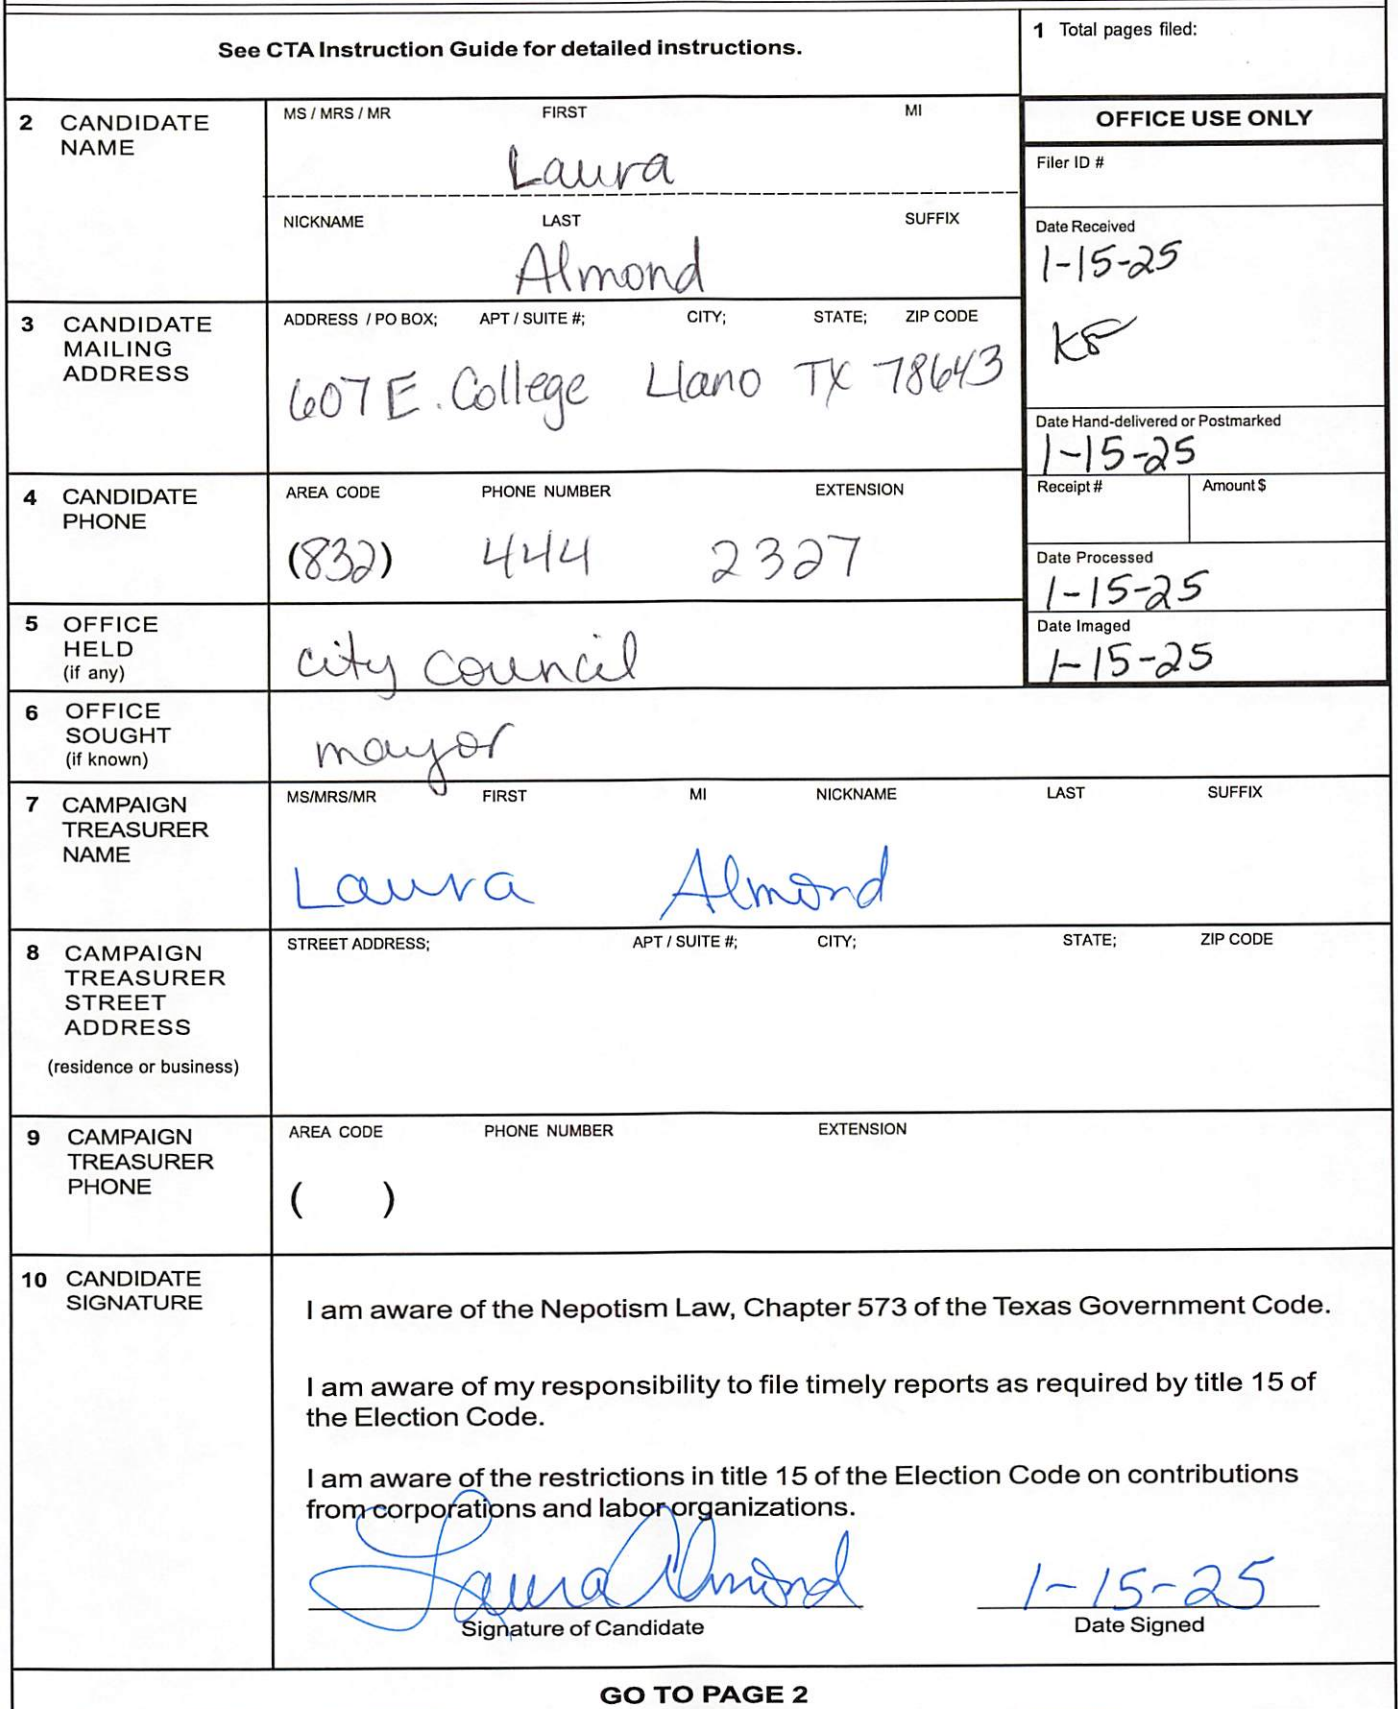 See CTA Instruction Guide for detailed instructions.
1 Total pages filed:
2 CANDIDATE NAME
MS / MRS / MR FIRST MI
Laura
NICKNAME LAST SUFFIX
Almond
OFFICE USE ONLY
Filer ID #
Date Received
1-15-25
Date Hand-delivered or Postmarked
1-15-25
Receipt # Amount $
Date Processed
1-15-25
Date Imaged
1-15-25
3 CANDIDATE MAILING ADDRESS
ADDRESS / PO BOX; APT / SUITE #; CITY; STATE; ZIP CODE
607 E. College Llano TX 78643
4 CANDIDATE PHONE
AREA CODE PHONE NUMBER EXTENSION
(832) 444 2327
5 OFFICE HELD (if any)
city council
6 OFFICE SOUGHT (if known)
mayor
7 CAMPAIGN TREASURER NAME
MS/MRS/MR FIRST MI NICKNAME LAST SUFFIX
Laura Almond
8 CAMPAIGN TREASURER STREET ADDRESS
(residence or business)
STREET ADDRESS; APT / SUITE #; CITY; STATE; ZIP CODE
9 CAMPAIGN TREASURER PHONE
AREA CODE PHONE NUMBER EXTENSION
( )
10 CANDIDATE SIGNATURE
I am aware of the Nepotism Law, Chapter 573 of the Texas Government Code.
I am aware of my responsibility to file timely reports as required by title 15 of
the Election Code.
I am aware of the restrictions in title 15 of the Election Code on contributions
from corporations and labor organizations.
Laura Almond 1-15-25
Signature of Candidate Date Signed
GO TO PAGE 2